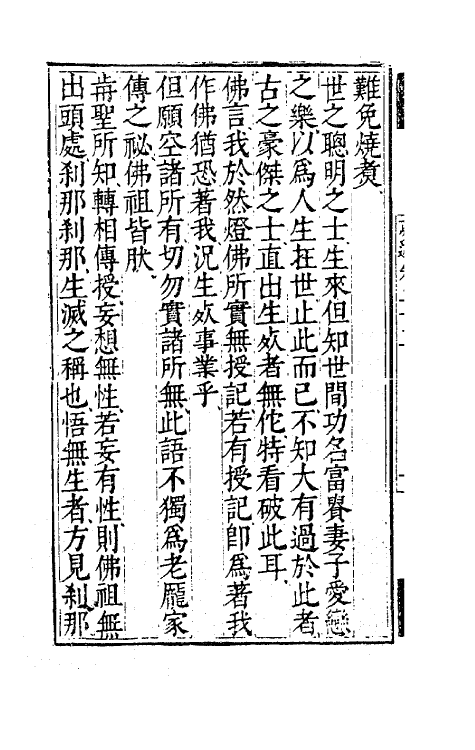 難免燒煑
世之聰明之士生來但知世間功名富貴妻子愛戀
之樂以爲人生在世止此而已不知大有過於此者
古之豪傑之士直出生㱥者無佗特看破此耳
佛言我於然燈佛所實無授記若有授記卽爲著我
作佛猶恐著我況生㱥事業乎
但願空諸所有切勿實諸所無此語不獨爲老龐家
傳之祕佛祖皆肰
歬聖所知轉相傳授妄想無性若妄有性則佛祖無
出頭處刹那刹那生滅之稱也悟無生者方見刹那